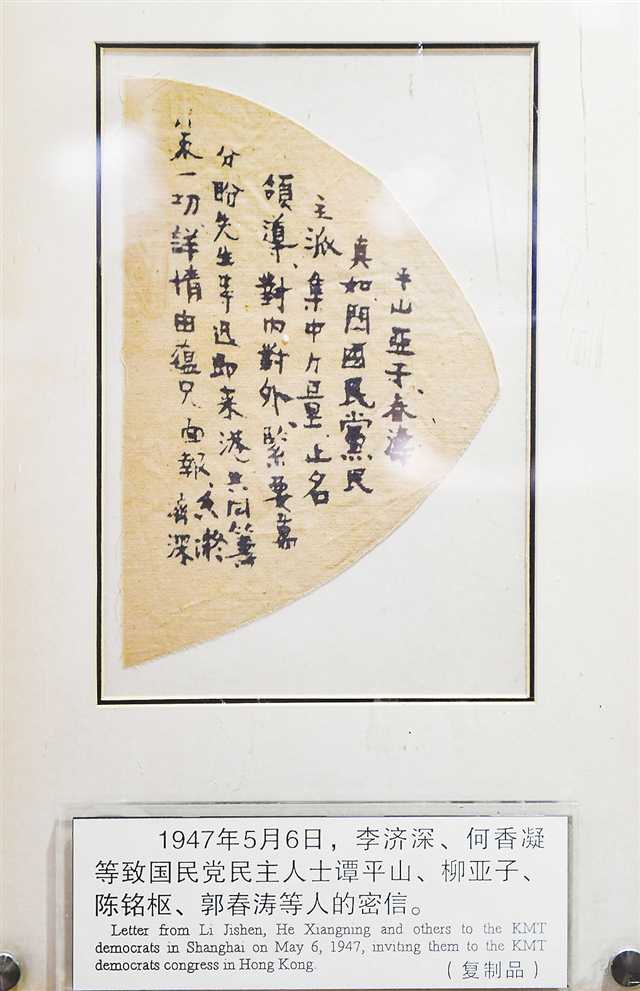 平山亞子、春濤、
真如閱國民黨民
主派集中力量正名
領導、對內對外、緊要萬
分盼先生等迅即來港共同籌
策一切詳情由蘊兄面報、
香凝
濟深
1947年5月6日，李济深、何香凝
等致国民党民主人士谭平山、柳亚子、
陈铭枢、郭春涛等人的密信。
Letter from Li Jishen, He Xiangning and others to the KMT
democrats in Shanghai on May 6, 1947, inviting them to the KMT
democrats congress in Hong Kong.
（复制品）